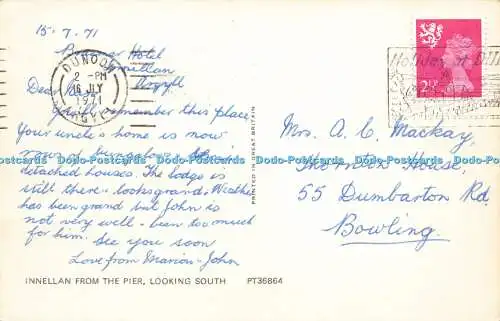 15-7-71
Hotel
Innellan
Argyll
DUNOON
2 - PM
16 JLY
1971
ARGYLL
Dear
remember this place
Your uncle's home is now
detached houses. The lodge is
still there - looks grand. Weather
has been grand but John is
not very well - been too much
for him. See you soon
Love from Marion - John
INNELLAN FROM THE PIER, LOOKING SOUTH PT36864
PRINTED IN GREAT BRITAIN
2½P
Holiday at
Mrs. A. C. Mackay,
House,
55 Dumbarton Rd,
Bowling.
Postcards Postcards Postcards Postcards Postcards Postcards